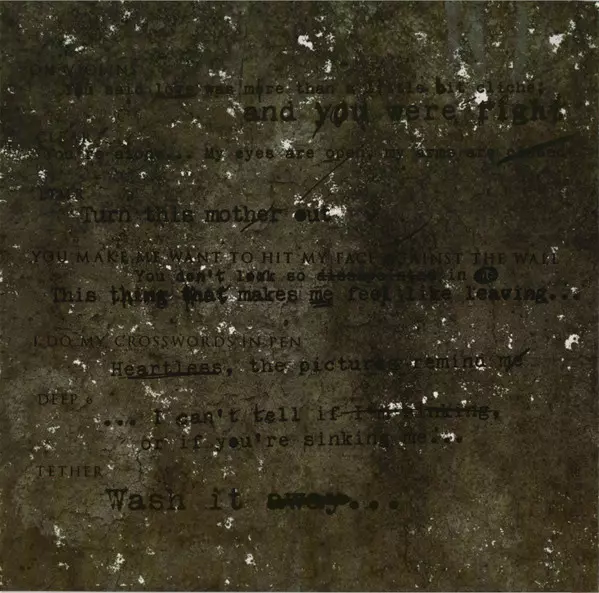 You said love was more than a little bit cliche;
and you were right
You're alone... My eyes are open, my arms are
Turn this mother out
YOU MAKE ME WANT TO HIT MY FACE AGAINST THE WALL
You don't look so disappointed in me
This thing that makes me feel like leaving...
I DO MY CROSSWORDS IN PEN
Heartless, the pictures remind me
DEEP 6
... I can't tell if I'm sinking,
or if you're sinking me...
TETHER
Wash it away...